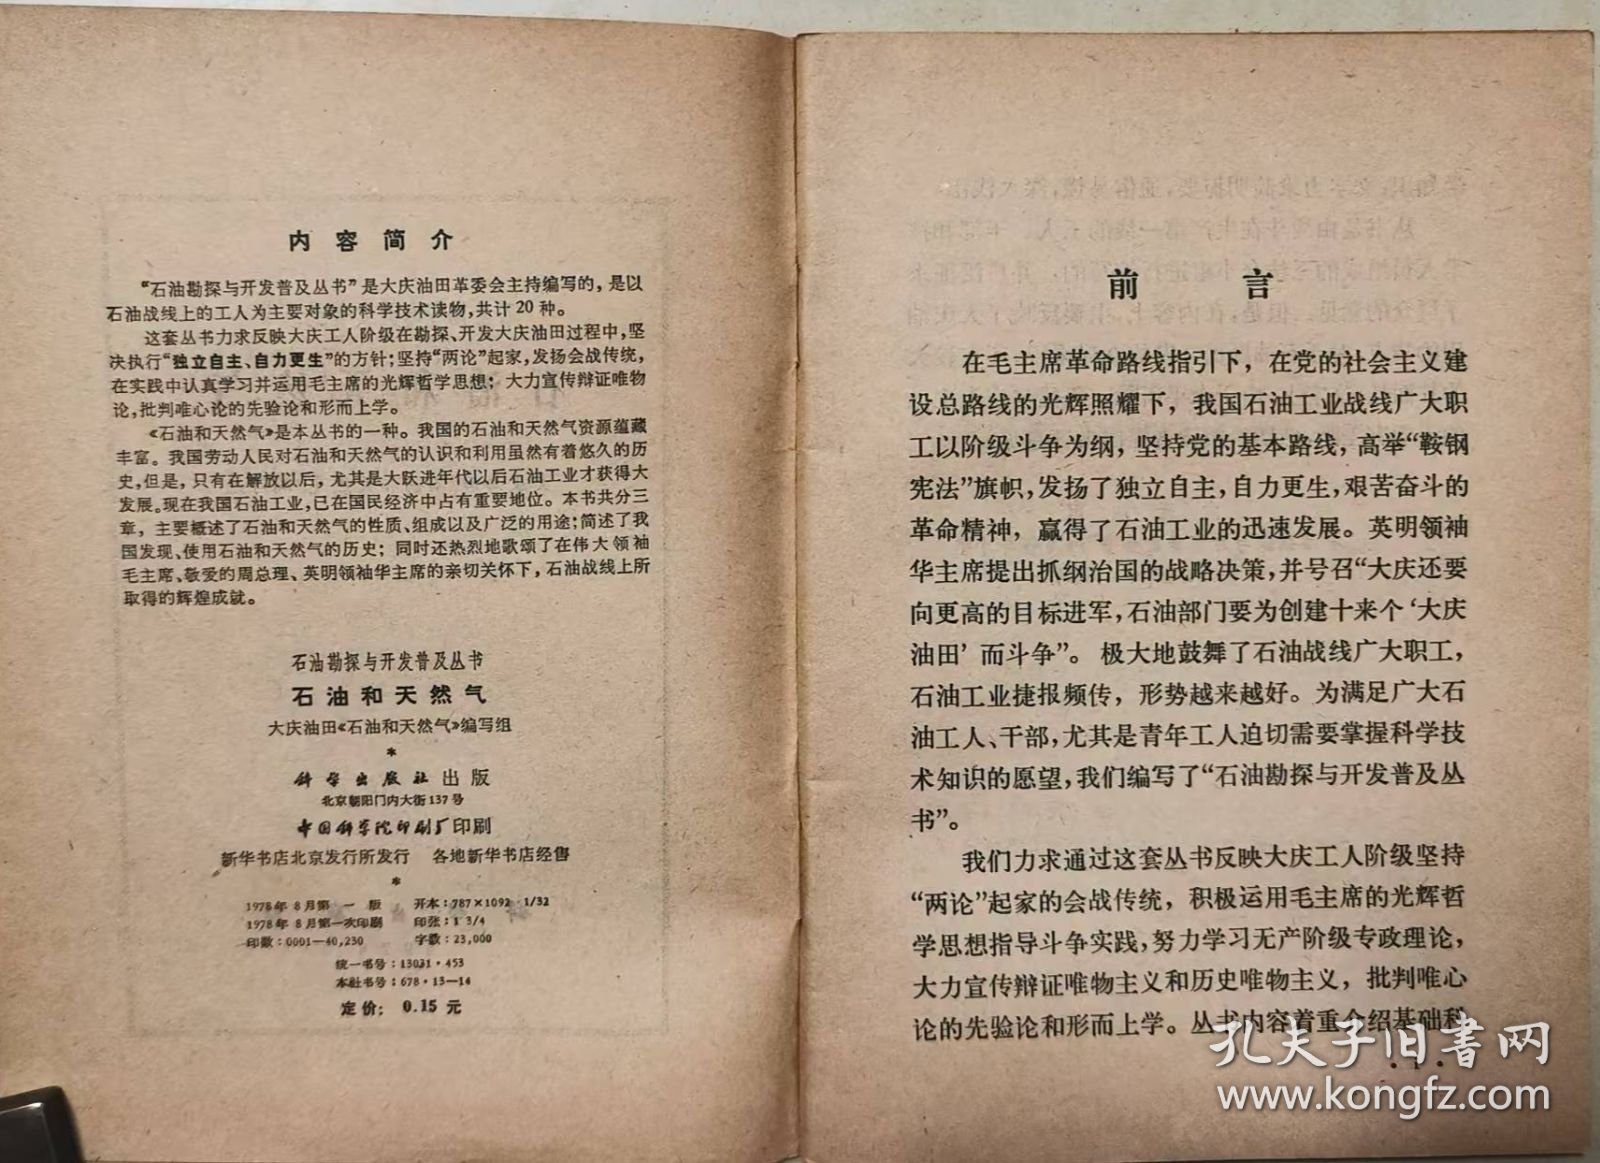 内容简介
“石油勘探与开发普及丛书”是大庆油田革委会主持编写的，是以
石油战线上的工人为主要对象的科学技术读物，共计20种。
这套丛书力求反映大庆工人阶级在勘探、开发大庆油田过程中，坚
决执行“独立自主、自力更生”的方针；坚持“两论”起家，发扬会战传统，
在实践中认真学习并运用毛主席的光辉哲学思想；大力宣传辩证唯物
论，批判唯心论的先验论和形而上学。
《石油和天然气》是本丛书的一种。我国的石油和天然气资源蕴藏
丰富。我国劳动人民对石油和天然气的认识和利用虽然有着悠久的历
史，但是，只有在解放以后，尤其是大跃进年代以后石油工业才获得大
发展。现在我国石油工业，已在国民经济中占有重要地位。本书共分三
章，主要概述了石油和天然气的性质、组成以及广泛的用途；简述了我
国发现、使用石油和天然气的历史；同时还热烈地歌颂了在伟大领袖
毛主席、敬爱的周总理、英明领袖华主席的亲切关怀下，石油战线上所
取得的辉煌成就。
石油勘探与开发普及丛书
石油和天然气
大庆油田《石油和天然气》编写组
*
科学出版社出版
北京朝阳门内大街137号
中国科学院印刷厂印刷
新华书店北京发行所发行 各地新华书店经售
*
1978年8月第一版 开本：787×1092 1/32
1978年8月第一次印刷 印张：1 3/4
印数：0001—40,230 字数：23,000
统一书号：13031·453
本社书号：678·13—14
定价：0.15元
前言
在毛主席革命路线指引下，在党的社会主义建
设总路线的光辉照耀下，我国石油工业战线广大职
工以阶级斗争为纲，坚持党的基本路线，高举“鞍钢
宪法”旗帜，发扬了独立自主，自力更生，艰苦奋斗的
革命精神，赢得了石油工业的迅速发展。英明领袖
华主席提出抓纲治国的战略决策，并号召“大庆还要
向更高的目标进军，石油部门要为创建十来个‘大庆
油田’而斗争”。极大地鼓舞了石油战线广大职工，
石油工业捷报频传，形势越来越好。为满足广大石
油工人、干部，尤其是青年工人迫切需要掌握科学技
术知识的愿望，我们编写了“石油勘探与开发普及丛
书”。
我们力求通过这套丛书反映大庆工人阶级坚持
“两论”起家的会战传统，积极运用毛主席的光辉哲
学思想指导斗争实践，努力学习无产阶级专政理论，
大力宣传辩证唯物主义和历史唯物主义，批判唯心
论的先验论和形而上学。丛书内容着重介绍基础科
·1·
孔夫子旧书网
www.kongfz.com